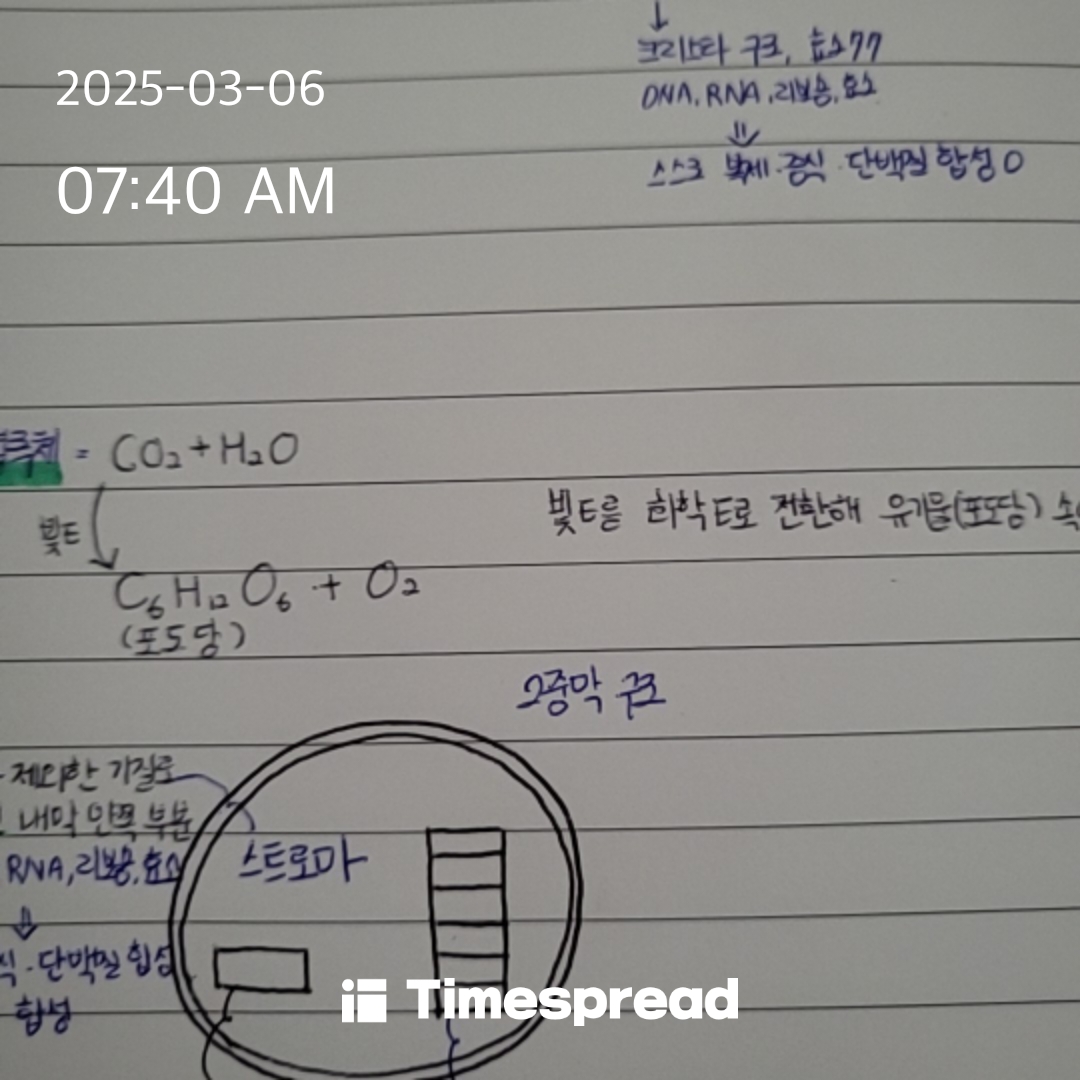 크리스타 구조, 효소77
DNA, RNA, 리보솜, 효소
⇓
스스로 복제·증식·단백질 합성 O
2025-03-06
07:40 AM
엽록체 = CO₂ + H₂O
빛E
빛E를 화학E로 전환해 유기물(포도당) 속
C₆H₁₂O₆ + O₂
(포도당)
2중막 구조
제외한 기질로
내막 안쪽 부분
RNA, 리보솜, 효소
스트로마
⇓
식·단백질 합성
합성
Timespread